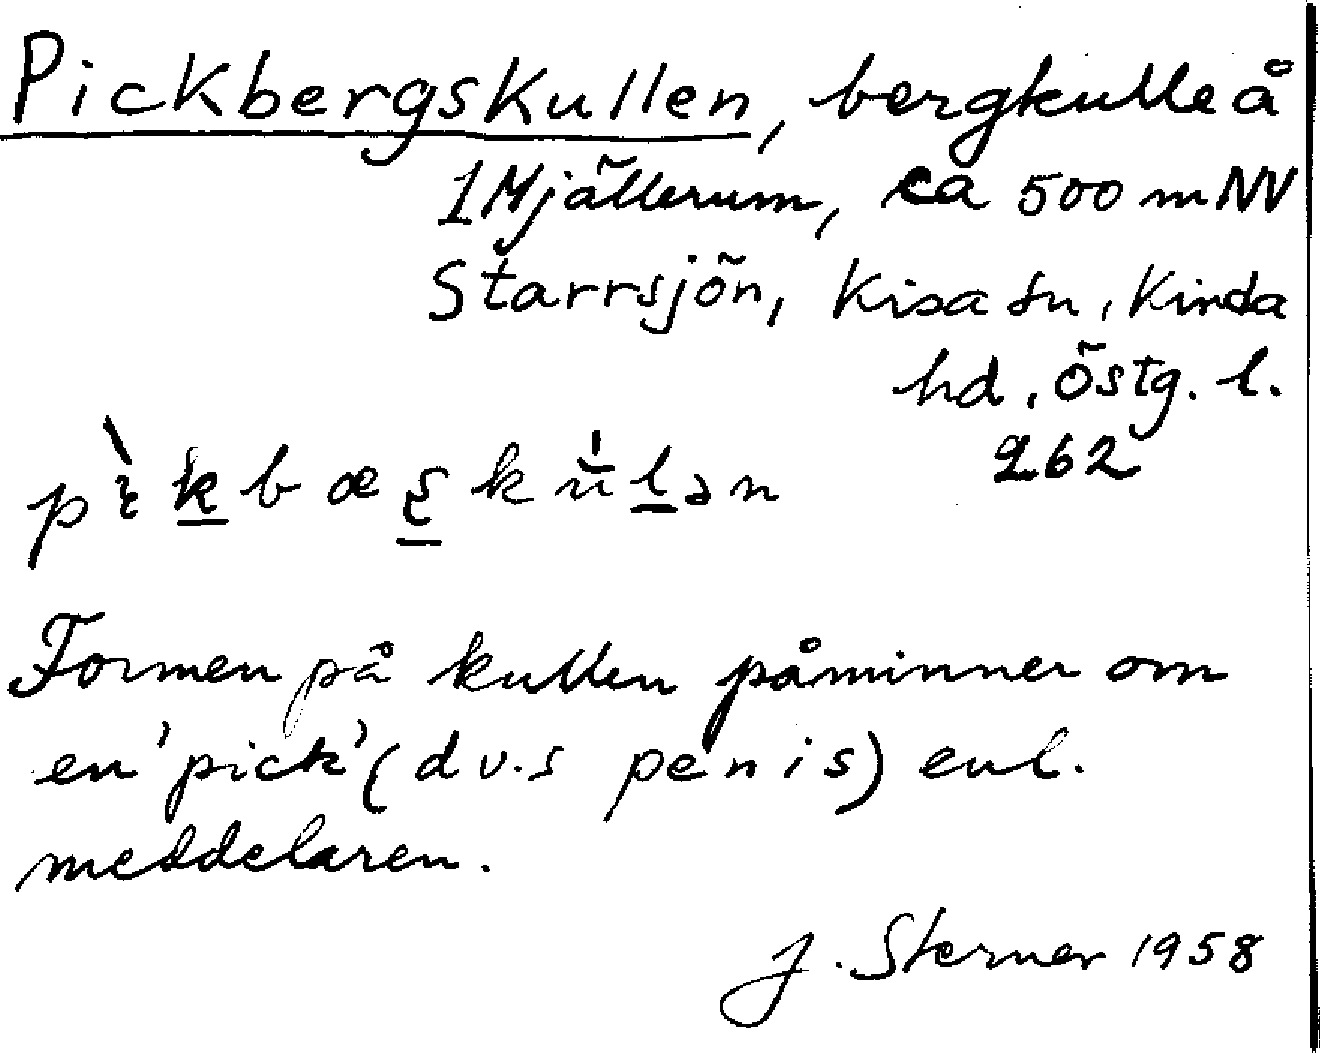 Pickbergskullen, bergkulle å
1 Mjällerum, ca 500 m NV
Starrsjön, Kisa sn, Kinda
hd, Östg. l.
262
Formen på kullen påminner om
en 'pick' (dv.s penis) enl.
meddelaren.
J. Sterner 1958